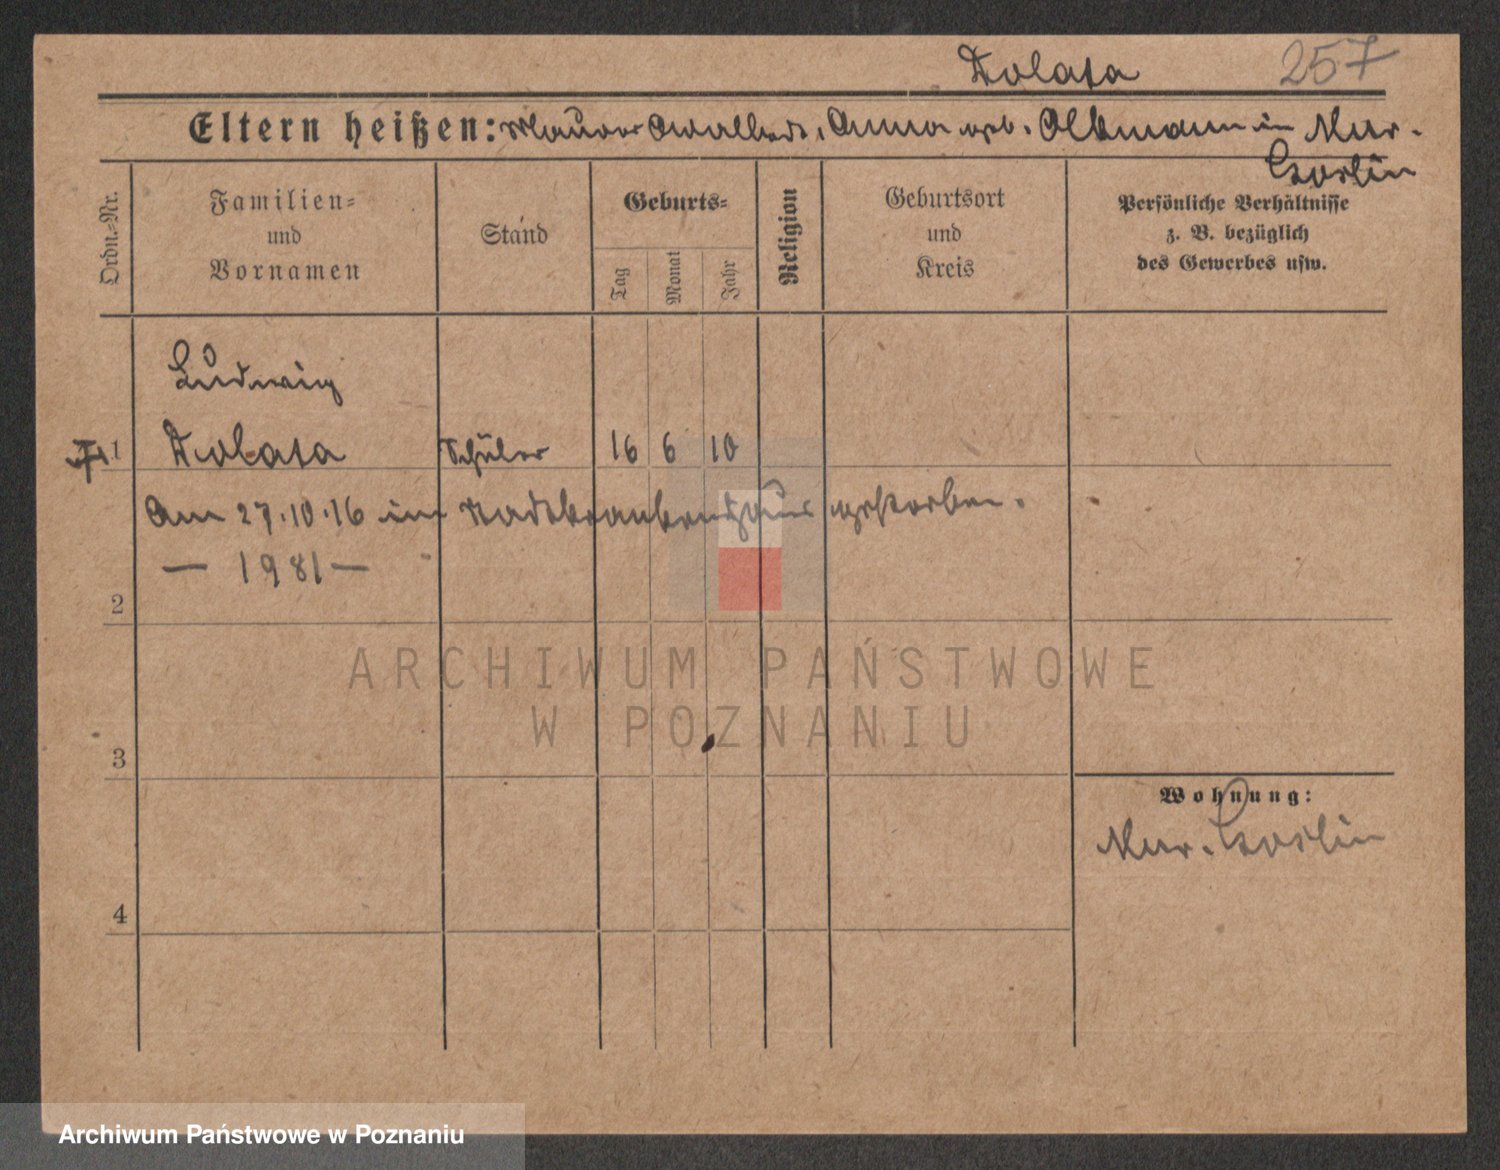 Dolata 257
Eltern heißen: Maurer Adalbert, Anna geb. Oltmann in Mur.
Goslin
Ordn.-Nr.
Familien=
und
Vornamen
Stand
Geburts=
Tag
Monat
Jahr
Religion
Geburtsort
und
Kreis
Persönliche Verhältnisse
z. B. bezüglich
des Gewerbes usw.
Ludwig
1 Dolata Schüler 16 6 10
Am 27.10.16 im Stadtkrankenhaus gestorben.
— 1981 —
2
ARCHIWUM PAŃSTWOWE
W POZNANIU
3
Wohnung:
Mur. Goslin
4
Archiwum Państwowe w Poznaniu